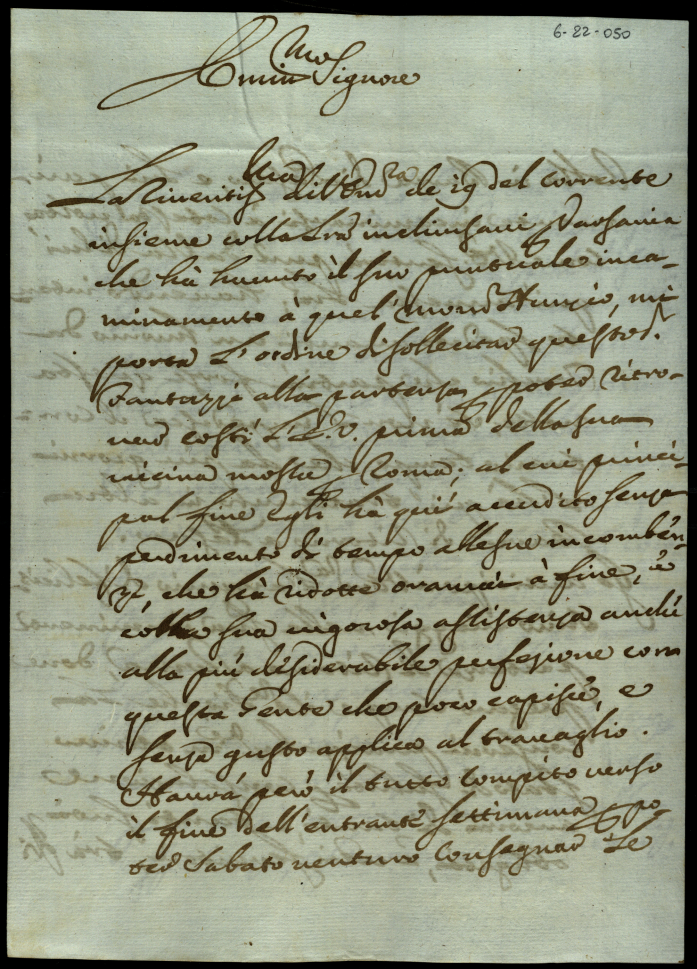 6-22-050
Signore
La riueritis.ma di V.S. de 19 del corrente
insieme colla inclusaui Varsauia
che hà hauuto il suo puntuale inca-
minamento à quel' Nunzio, mi
porta l'ordine di sollecitar questo Sr.
Fantozzi alla partenza p poter ritro-
uar costì prima della sua
uicina mossa p Roma; al cui princi-
pal fine Egli hà quì accudito senza
perdimento di tempo alle sue incomben-
ze, che hà ridotte oramai à fine, è
colla sua uigorosa assistenza anche
alla più desiderabile perfezione con
questa Gente che poco capisce, e
senza gusto applica al trauaglio.
Haurà però il tutto compito uerso
il fine dell'entrante settimana p po-
ter Sabato uenturo consegnar le